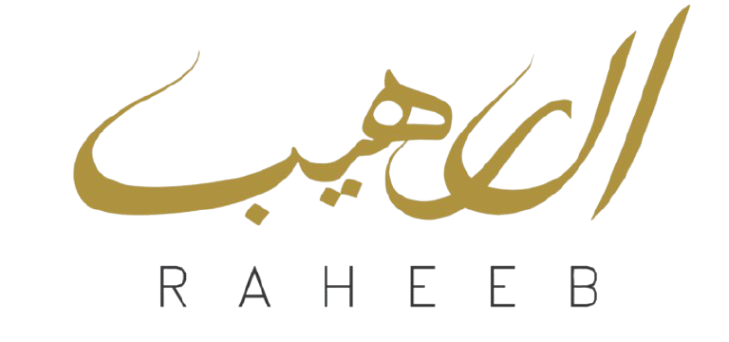 الرهيب
RAHEEB